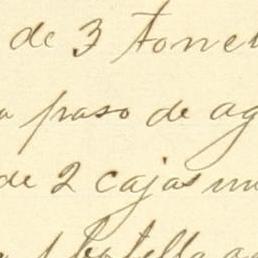 de 3 tonel
paso de ag
de 2 cajas mu
1 botella ag